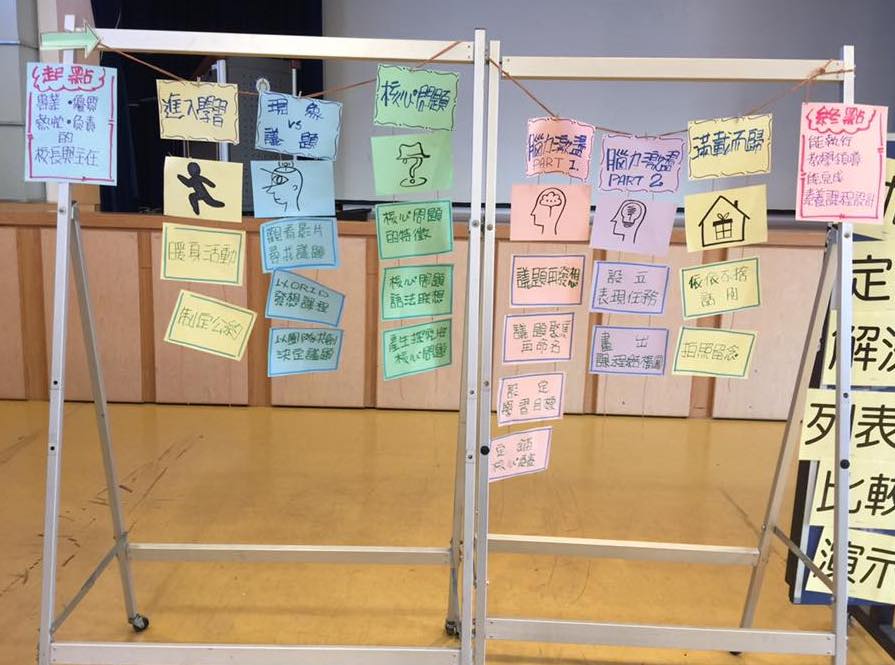 起點
專業・優質
熱忱・負責
的
校長與主任
進入學習
暖身活動
制定公約
現象
vs
議題
觀看影片
尋找議題
以ORID
發想課程
決定議題
核心問題
核心問題
的特徵
核心問題
語法聯想
產生探究性
核心問題
腦力激盪
PART 1.
議題再發想
議題聚焦
再命名
設定
學習目標
定錨
核心問題
腦力激盪
PART 2
設立
表現任務
畫出
滿載而歸
依依不捨
話用
拍照留念
終點
能執行
教學領導
能完成
素養課程設計
定
解決
列表
比較
演示